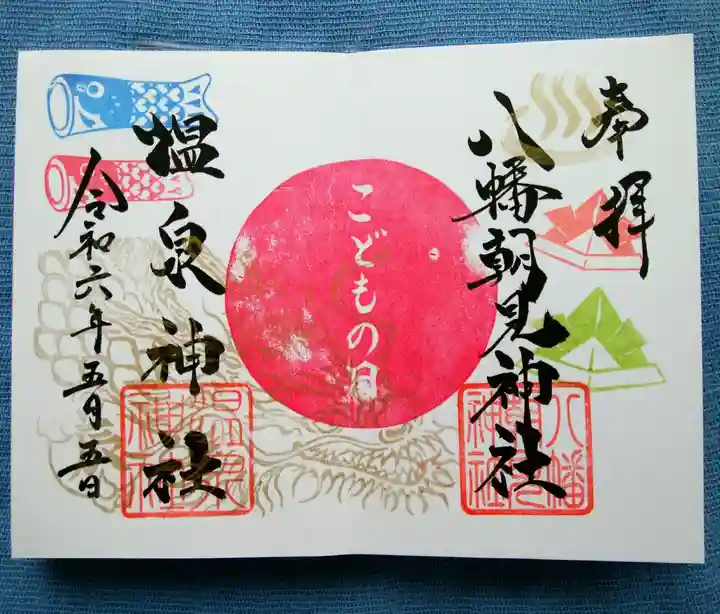 奉拝
八幡朝見神社
八幡朝見神社
こどもの日
熅泉神社
温泉神社
令和六年五月五日